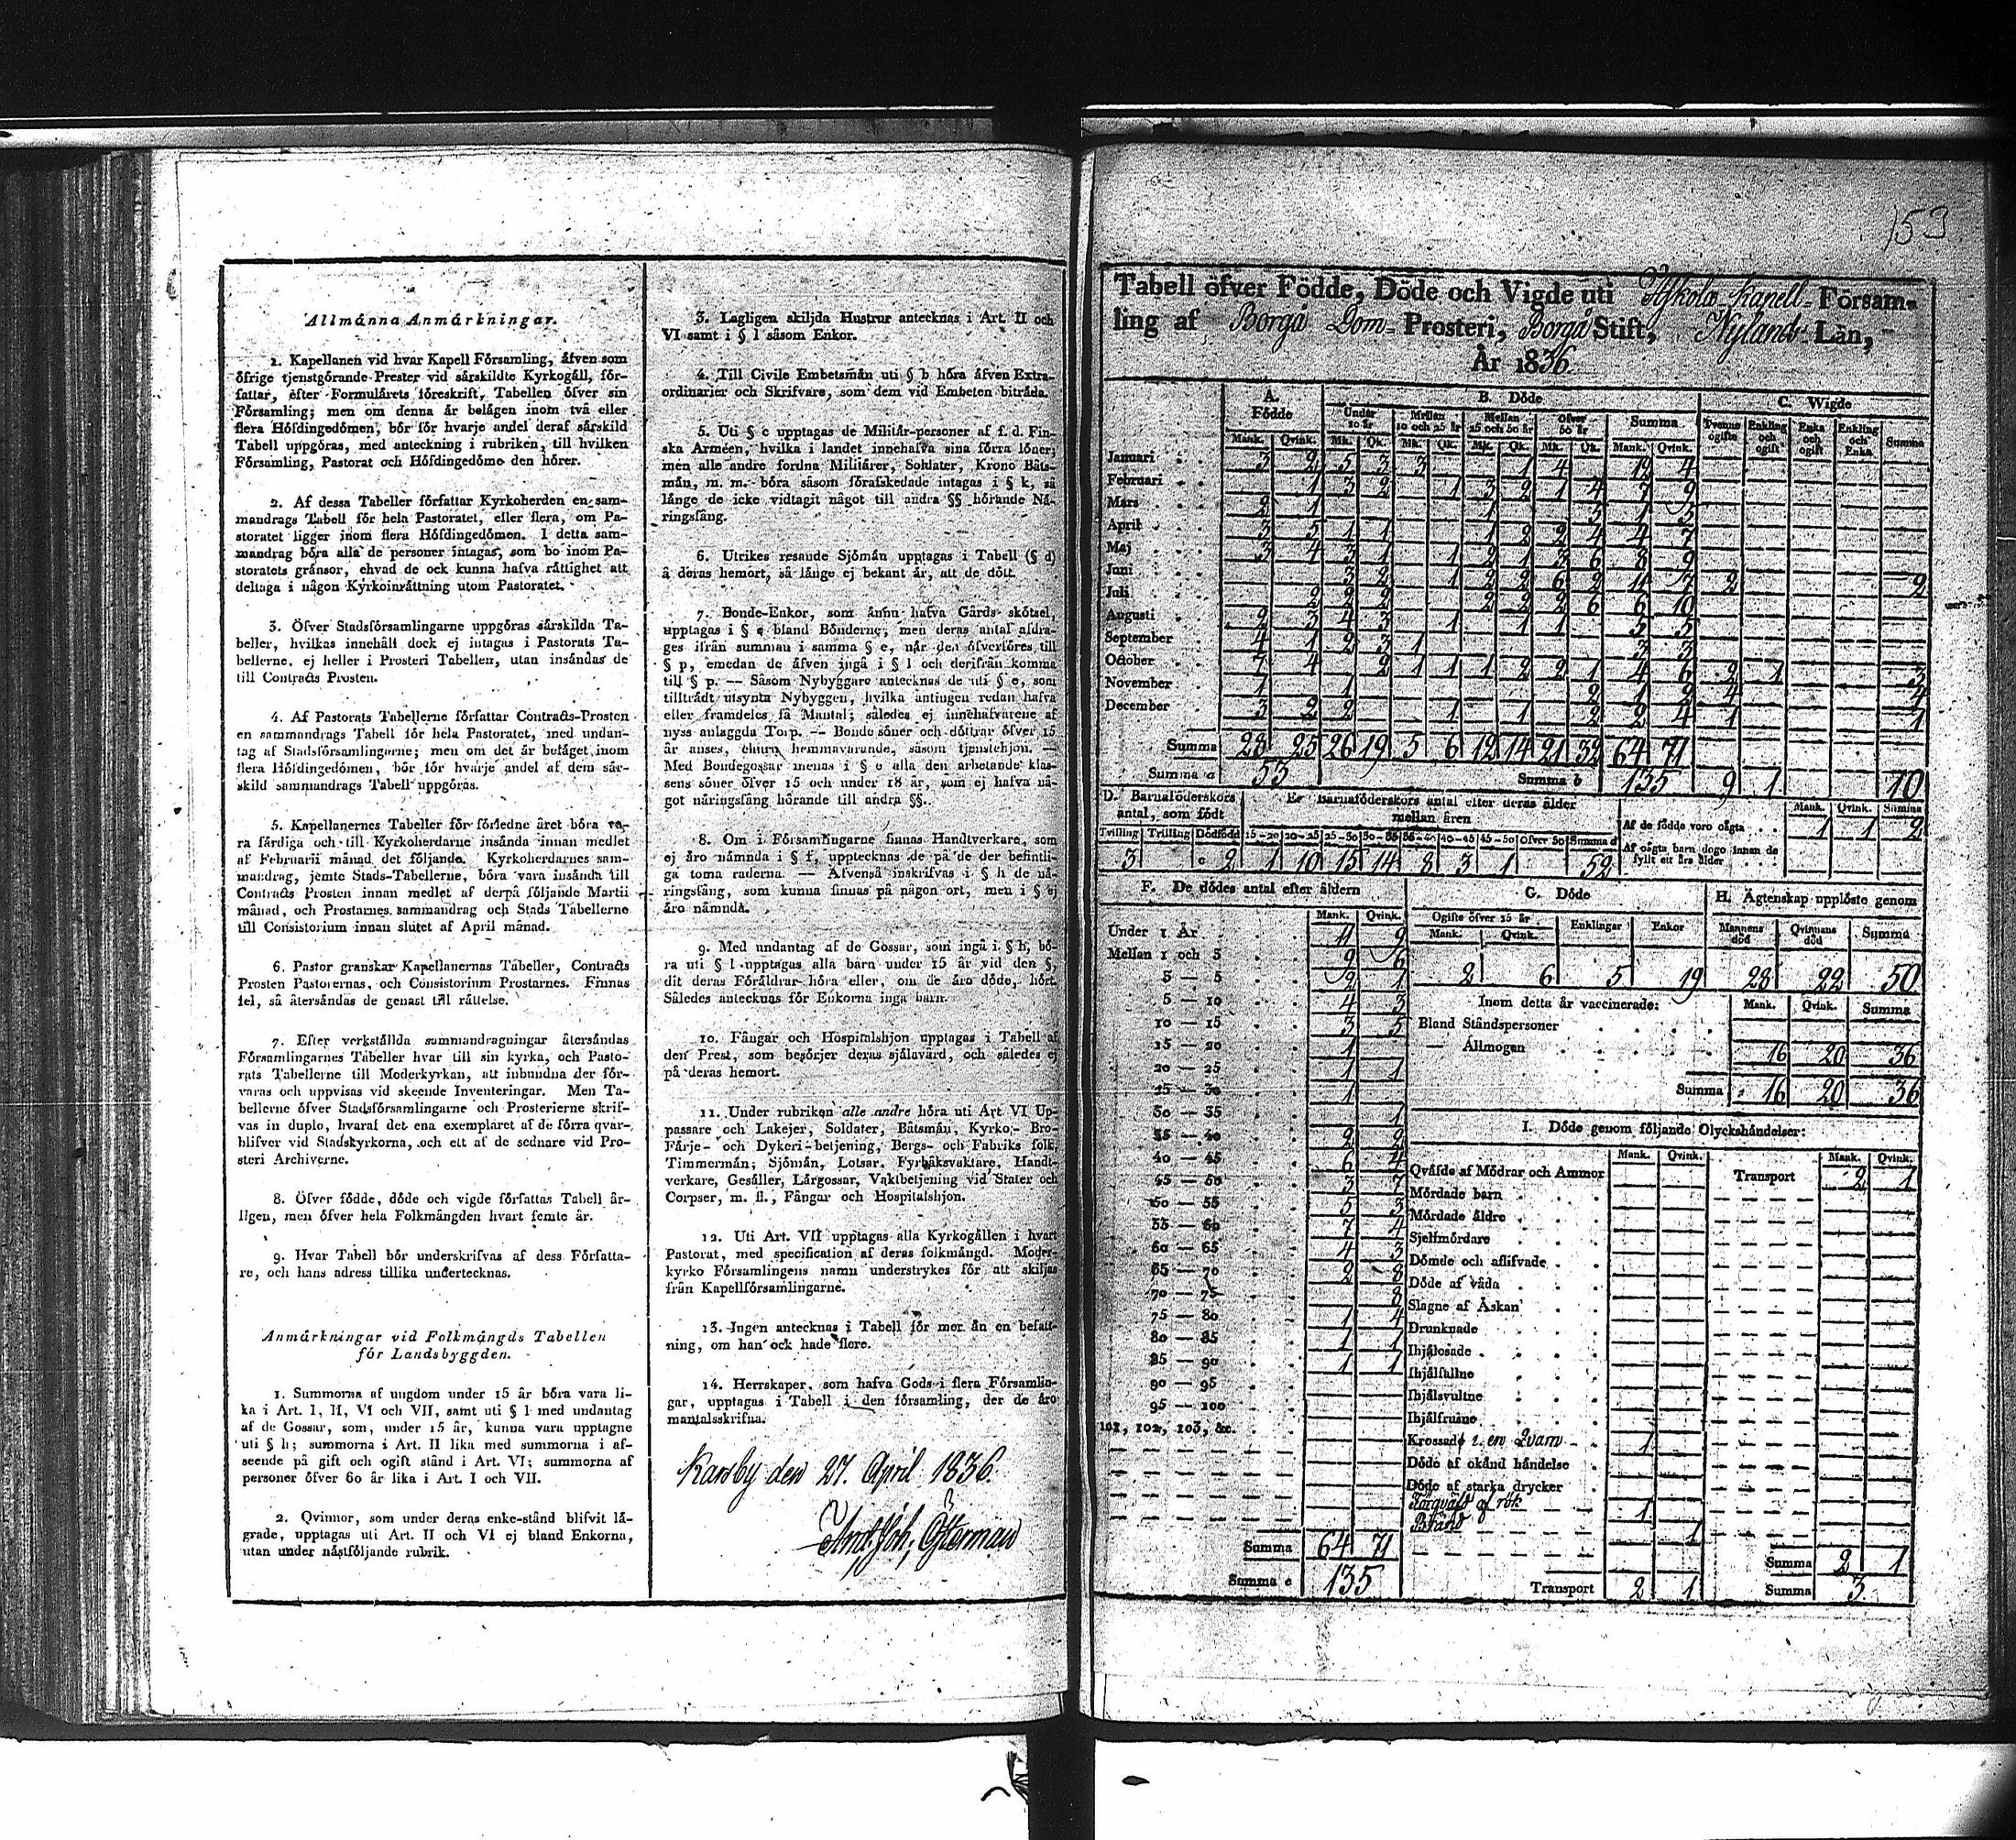 Allmänna Anmärkningar.
1. Kapellanen vid hvar Kapell Församling, äfven som
öfrige tjenstgörande Prester vid särskildte Kyrkogäll, för-
fattar, efter Formulärets föreskrift, Tabellen öfver sin
Församling; men om denna är belägen inom två eller
flera Höfdingedömen, bör för hvarje andel deraf särskild
Tabell uppgöras, med anteckning i rubriken, till hvilken
Församling, Pastorat och Höfdingedöme den hörer.
2. Af dessa Tabeller författar Kyrkoherden en sam-
mandrags Tabell för hela Pastoratet, eller flera, om Pa-
storatet ligger inom flera Höfdingedömen. I detta sam-
mandrag böra alla de personer intagas, som bo inom Pa-
storatets gränsor, ehvad de ock kunna hafva råttighet att
deltaga i någon Kyrkoinråttning utom Pastoratet.
3. Öfver Stadsförsamlingarne uppgöras särskilda Ta-
beller, hvilkas innehåll dock ej intagas i Pastorats Ta-
bellerne, ej heller i Prosteri Tabellen, utan insändas de
till Contracts Prosten.
4. Af Pastorats Tabellerne författar Contracts-Prosten
en sammandrags Tabell för hela Pastoratet, med undan-
tag af Stadsförsamlingarne; men om det är beläget inom
flera Höfdingedömen, bör för hvarje andel af dem sär-
skild sammandrags Tabell uppgöras.
5. Kapellanernes Tabeller för förledne året böra va-
ra färdiga och till Kyrkoherdarne insända innan medlet
af Februarii månad det följande. Kyrkoherdarnes sam-
mandrag, jemte Stads-Tabellerne, böra vara insända till
Contracts Prosten innan medlet af derpå följande Martii
månad, och Prostarnes sammandrag och Stads Tabellerne
till Consistorium innan slutet af April månad.
6. Pastor granskar Kapellanernas Tabeller, Contracts
Prosten Pastorernas, och Consistorium Prostarnes. Finnas
fel, så återsändas de genast till råttelse.
7. Efter verkställda sammandragningar återsändas
Församlingarnes Tabeller hvar till sin kyrka, och Pasto-
rats Tabellerne till Moderkyrkan, att inbundna der för-
varas och uppvisas vid skeende Inventeringar. Men Ta-
bellerne öfver Stadsförsamlingarne och Prosterierne skrif-
vas in duplo, hvaraf det ena exemplaret af de förra qvar-
blifver vid Stadskyrkorna, och ett af de sednare vid Pro-
steri Archiverne.
8. Öfver födde, döde och vigde författas Tabell år-
ligen, men öfver hela Folkmängden hvart femte år.
9. Hvar Tabell bör underskrifvas af dess Författa-
re, och hans adress tillika undertecknas.
Anmärkningar vid Folkmängds Tabellen
för Landsbyggden.
1. Summorna af ungdom under 15 år böra vara li-
ka i Art. I, II, VI och VII, samt uti § l med undantag
af de Gossar, som, under 15 år, kunna vara upptagne
uti § h; summorna i Art. II lika med summorna i af-
seende på gift och ogift stånd i Art. VI; summorna af
personer öfver 60 år lika i Art. I och VII.
2. Qvinnor, som under deras enke-stånd blifvit lä-
grade, upptagas uti Art. II och VI ej bland Enkorna,
utan under nästföljande rubrik.
3. Lagligen skiljda Hustrur antecknas i Art. II och
VI samt i § l såsom Enkor.
4. Till Civile Embetsmän uti § b höra äfven Extra-
ordinarier och Skrifvare, som dem vid Embeten biträda.
5. Uti § c upptagas de Militär-personer af f. d. Fin-
ska Arméen, hvilka i landet innehafva sina förra löner;
men alle andre fordna Militärer, Soldater, Krono Båts-
män, m. m. böra såsom förafskedade intagas i § k, så
länge de icke vidtagit något till andra §§ hörande Nä-
ringsfång.
6. Utrikes resande Sjömän upptagas i Tabell (§ d)
å deras hemort, så länge ej bekant är, att de dött.
7. Bonde-Enkor, som ännu hafva Gårds skötsel,
upptagas i § e bland Bönderne; men deras antal afdra-
ges ifrån summan i samma § e, når den öfverföres till
§ p, emedan de äfven ingå i § l och derifrån komma
till § p. — Såsom Nybyggare antecknas de uti § e, som
tillträdt utsynta Nybyggen, hvilka antingen redan hafva
eller framdeles få Mantal; således ej innehafvarene af
nyss anlaggda Torp. — Bonde söner och döttrar öfver 15
år anses, ehuru hemmavarande, såsom tjenstehjon. —
Med Bondegossar menas i § e alla den arbetande klas-
sens söner öfver 15 och under 18 år, som ej hafva nå-
got näringsfång hörande till andra §§.
8. Om i Församlingarne finnas Handtverkare, som
ej äro nämnda i § f, upptecknas de på de der befintli-
ga toma raderna. — Äfvenså inskrifvas i § h de nä-
ringsfång, som kunna finnas på någon ort, men i § ej
äro nämnda.
9. Med undantag af de Gossar, som ingå i § h, bö-
ra uti § l upptagas alla barn under 15 år vid den §,
dit deras Föräldrar höra eller, om de äro döde, hört.
Således antecknas för Enkorna inga barn.
10. Fångar och Hospitalshjon upptagas i Tabell af
den Prest, som besörjer deras själavård, och således ej
på deras hemort.
11. Under rubriken alle andre höra uti Art VI Up-
passare och Lakejer, Soldater, Båtsmän, Kyrko- Bro-
Färje- och Dykeri-betjening, Bergs- och Fabriks folk,
Timmermän, Sjömän, Lotsar, Fyrbåksvaktare, Handt-
verkare, Gesäller, Lärgossar, Vaktbetjening vid Stater och
Corpser, m. fl., Fångar och Hospitalshjon.
12. Uti Art. VII upptagas alla Kyrkogällen i hvart
Pastorat, med specification af deras folkmängd. Moder-
kyrko Församlingens namn understrykes för att skiljas
från Kapellförsamlingarne.
13. Ingen antecknas i Tabell för mer än en befatt-
ning, om han ock hade flere.
14. Herrskaper, som hafva Gods i flera Församlin-
gar, upptagas i Tabell i den församling, der de äro
mantalsskrifna.
Karsby den 27. April 1836.
Joh. Österman
153
Tabell öfver Födde, Döde och Vigde uti Askola Kapell- Försam-
ling af Borgå Dom- Prosteri, Borgå Stift, Nylands Län,
År 1836.
A. Födde B. Döde C. Wigde
Under 10 år Mellan 10 och 25 år Mellan 25 och 50 år Öfver 50 år Summa Tvenne ogifte Enkling och ogift Enka och ogift Enkling och Enka Summa
Mank. Qvink. Mk. Qk. Mk. Qk. Mk. Qk. Mk. Qk. Mank. Qvink.
Januari 3 2 5 3 3 1 4 12 4
Februari 1 3 2 1 3 2 1 4 7 9
Mars 2 1 1 5 1 5
April 3 5 1 1 1 2 2 4 4 7
Maj 3 4 3 1 1 2 1 3 6 8 9
Juni 3 2 1 2 2 6 2 11 7 2 2
Juli 2 2 2 2 2 2 6 6 10
Augusti 2 3 4 3 1 1 1 5 5
September 4 1 2 3 1 3 3
October 7 4 2 1 1 1 2 2 1 4 6 2 1 3
November 1 1 2 1 2 4 4
December 3 2 2 1 1 2 2 4 1 1
Summa 28 25 26 19 5 6 12 14 21 32 64 71
Summa a 53 Summa b 135 9 1 10
D. Barnaföderskors antal, som födt
E. Barnaföderskors antal efter deras ålder mellan åren
Mank. Qvink. Summa
Tvilling Trilling Dödfödd 15-20 20-25 25-30 30-35 35-40 40-45 45-50 Öfver 50 Summa d
Af de födde voro oägta 1 1 2
3 2 1 10 15 14 8 3 1 52
Af oägta barn dogo innan de fyllt ett års ålder
F. De dödes antal efter åldern
Mank. Qvink.
Under 1 År 11 9
Mellan 1 och 3 9 6
3 — 5 2 1
5 — 10 4 3
10 — 15 3 5
15 — 20 1
20 — 25 1 1
25 — 30 1
30 — 35 1
35 — 40 2 2
40 — 45 6 4
45 — 50 3 7
50 — 55 5 3
55 — 60 7 4
60 — 65 4 3
65 — 70 2 8
70 — 75 8
75 — 80 1 4
80 — 85 1 1
85 — 90 1 1
90 — 95
95 — 100
101, 102, 103, &c.
Summa 64 71
Summa e 135
G. Döde
Ogifte öfver 15 år Enklingar Enkor
Mank. Qvink.
2 6 5 19
H. Ägtenskap upplöste genom
Mannens död Qvinnans död Summa
28 22 50
Inom detta år vaccinerade: Mank. Qvink. Summa
Bland Ståndspersoner
— Allmogen 16 20 36
Summa 16 20 36
I. Döde genom följande Olyckshändelser:
Mank. Qvink. Mank. Qvink.
Qväfde af Mödrar och Ammor Transport 2 1
Mördade barn
Mördade äldre
Sjelfmördare
Dömde och aflifvade
Döde af våda
Slagne af Åskan
Drunknade
Ihjälosade
Ihjälfallne
Ihjälsvultne
Ihjälfrusne
Krossade i en Qvarn 1
Döde af okänd händelse
Döde af starka drycker
Förqväfd af rök 1
Bränd 1
Summa 2 1
Transport 2 1 Summa 3